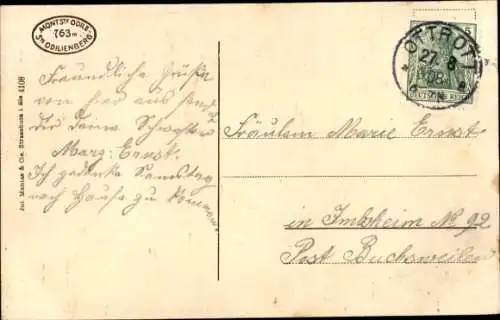 MONT STE ODILE
763 m
ST ODILIENBERG
Freundliche Grüße
von hier aus sendet
dir deine Schwester
Marg. Ernst.
Ich gedenke Samstag
nach Hause zu kommen.
Jul. Manias & Cie. Strassburg i. Els 4108
OTTROTT
27 8
08
5
DEUTSCHES REICH
Fräulein Marie Ernst
in Imbsheim N 92
Post Buchsweiler